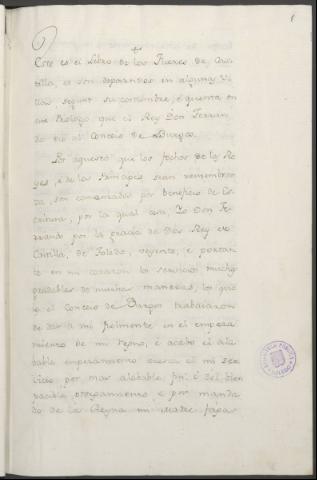 1
Este es el Libro de los Fueros de Cas-
tilla, e son departidos en algunas Vi-
llas, segunt su costumbre, e quenta en
este Prologo que el Rey Don Ferran-
do dió al Concejo de Burgos.
Por aquesto que los fechos de los Re-
yes, e de los Principes sean remembran-
za, son comendados por beneficio de Es-
criptura, por la qual cosa, Yo Don Fe-
rrando por la gracia de Dios Rey de
Castilla, de Toledo, veyente, e portan-
te en mi corazon los servicios mucho
de muchas maneras, los que
a el Concejo de Burgos trabaiaron
de dar a mi fielmente en el empeza-
miento de mi regno, e acabo el ala-
bable empezamiento cerca el mi ser-
vicio por mas alabable fin, e del bien
e por manda-
do de la Reyna mi Madre